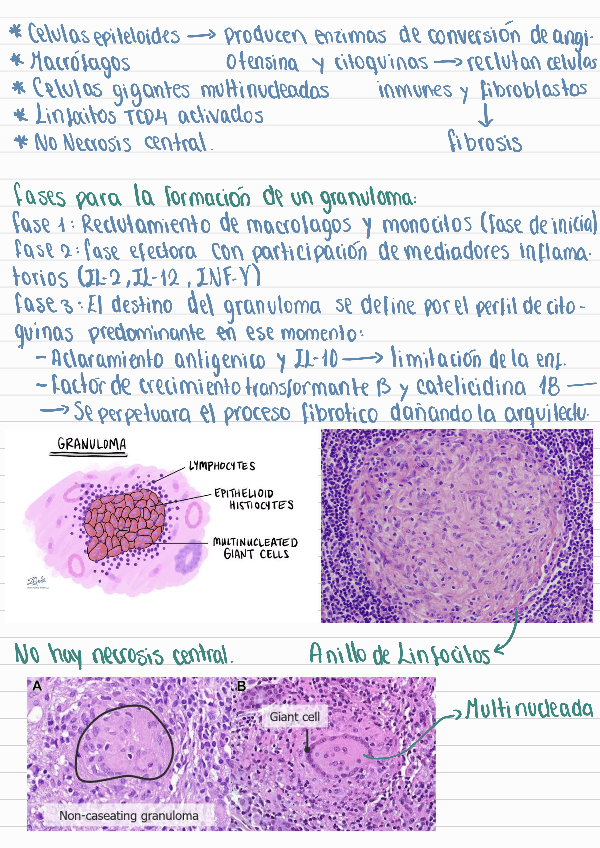 * Celulas epiteloides → producen enzimas de conversión de angi-
* Macrófagos otensina y citoquinas → reclutan celulas
* Celulas gigantes multinucleadas inmunes y fibroblastos
* Linfocitos TCD4 activados ↓
* No Necrosis central. fibrosis
Fases para la formación de un granuloma:
Fase 1: Reclutamiento de macrofagos y monocitos (fase de inicia)
Fase 2: fase efectora con participación de mediadores inflama-
torios (IL-2, IL-12, INF-γ)
Fase 3: El destino del granuloma se define por el perfil de cito-
quinas predominante en ese momento:
- Aclaramiento antigenico y IL-10 → limitación de la enf.
- Factor de crecimiento transformante β y catelicidina 18 —
→ Se perpetuara el proceso fibrotico dañando la arquitectu.
GRANULOMA
LYMPHOCYTES
EPITHELIOID
HISTIOCYTES
MULTINUCLEATED
GIANT CELLS
No hay necrosis central. Anillo de Linfocitos
A B
Giant cell
Multinucleada
Non-caseating granuloma